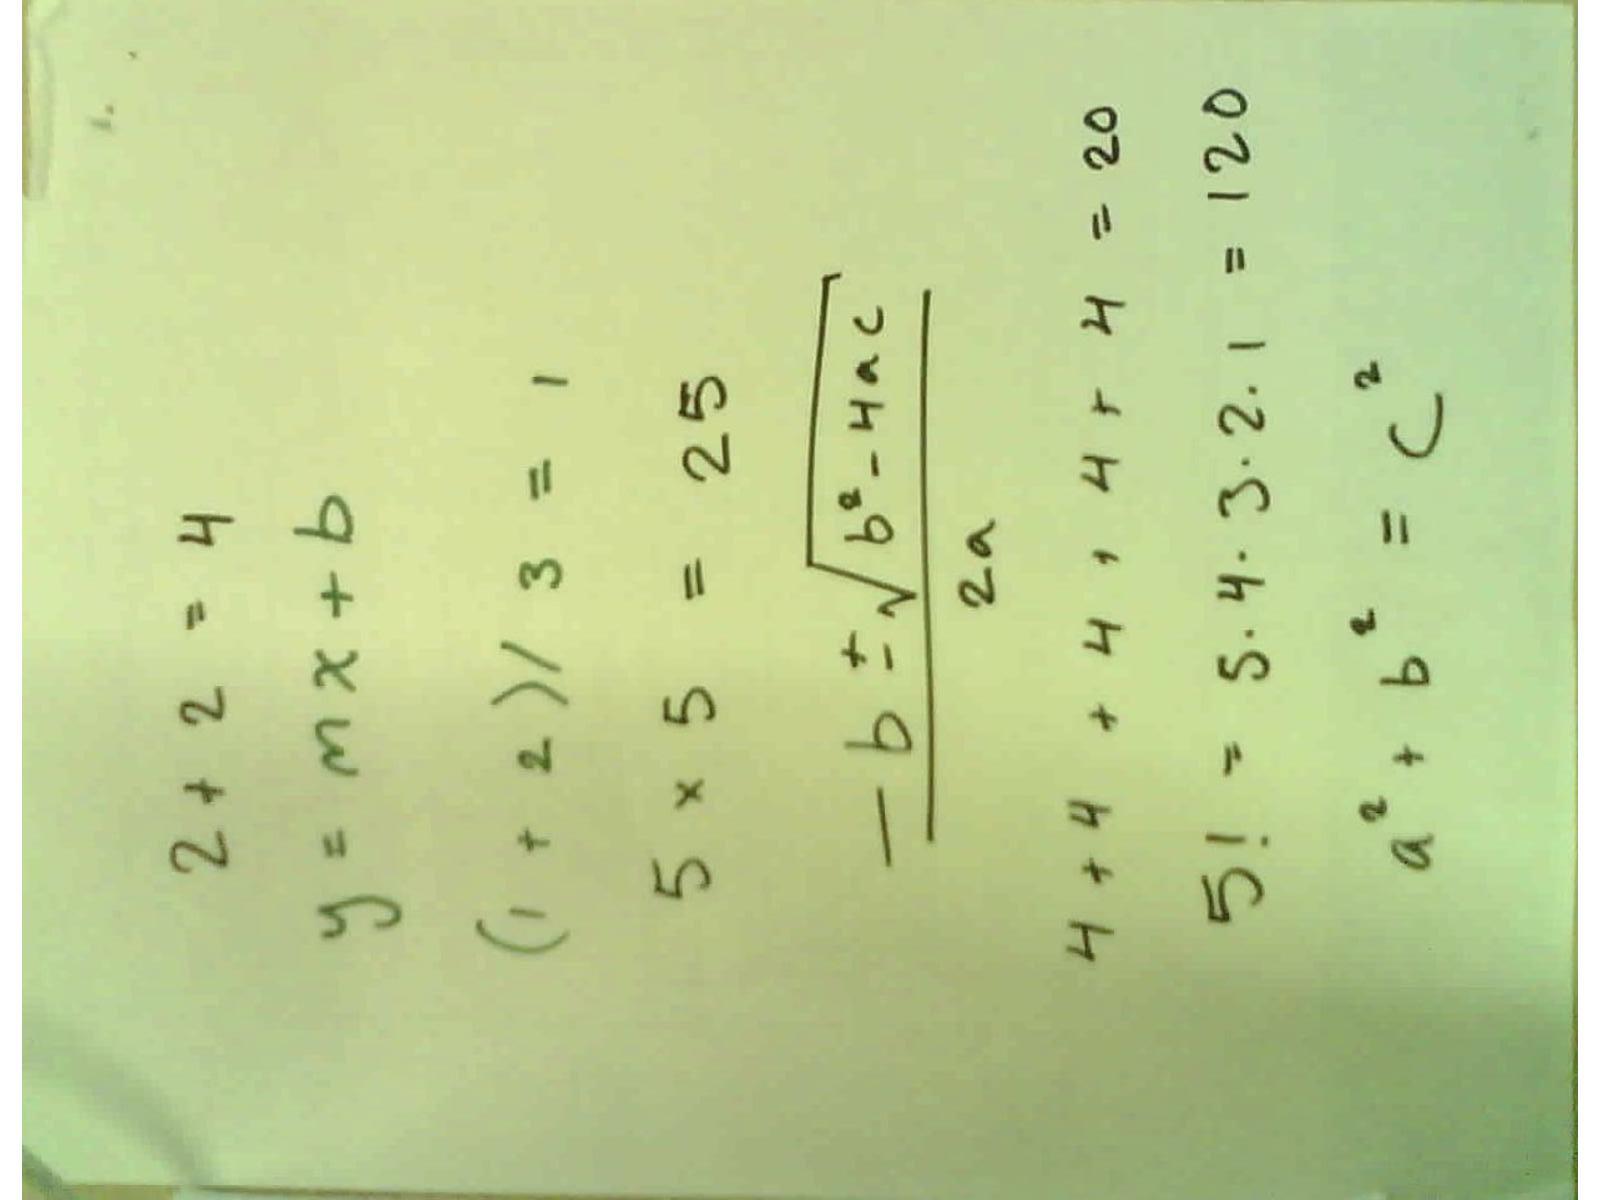 2 + 2 = 4
y = mx + b
(1 + 2) / 3 = 1
5 × 5 = 25
−b ± √(b² − 4ac)
2a
4 + 4 + 4 + 4 + 4 = 20
5! = 5 · 4 · 3 · 2 · 1 = 120
a² + b² = c²